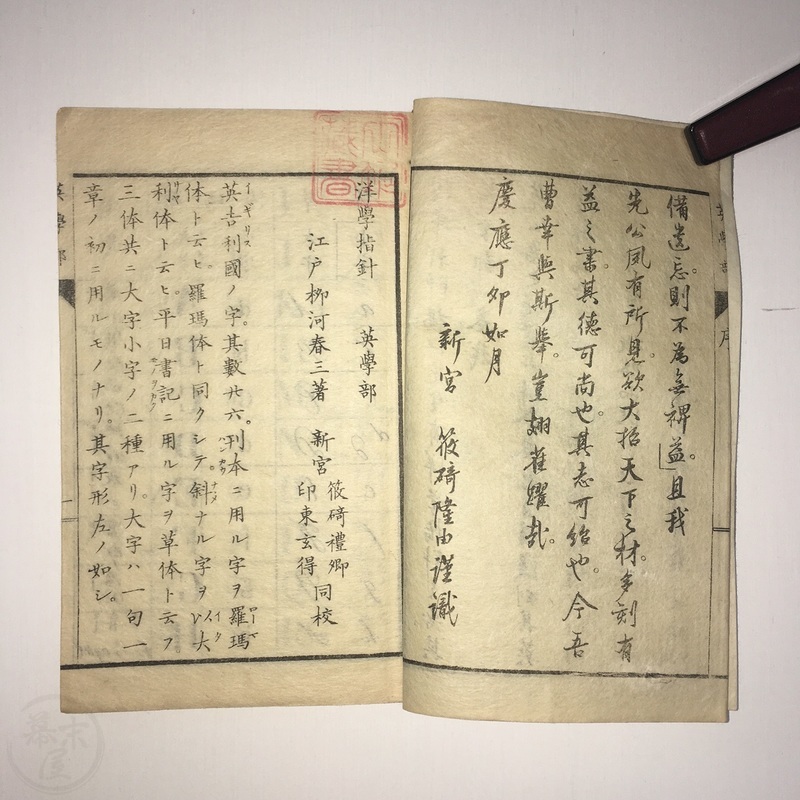 備遺忘。則不為無裨益。且我
先公夙有所見。欲大招天下之材。多刻有
益之書。其德可尚也。其志可紹也。今吾
曹幸與斯舉。豈翅雀躍哉。
慶應丁卯如月
新宮 筱﨑隆由謹識
洋學指針 英學部
江戸栁河春三著 新宮 筱﨑禮卿 印東玄得 同校
英吉利國ノ字。其數廿六。刊本ニ用ル字ヲ羅瑪
体ト云ヒ。羅瑪体ト同クシテ。斜ナル字ヲ以大
利体ト云ヒ。平日書記ニ用ル字ヲ草体ト云フ
三体共ニ大字小字ノ二種アリ。大字ハ一句一
章ノ初ニ用ルモノナリ。其字形左ノ如シ。
英學部
序
幕末屋